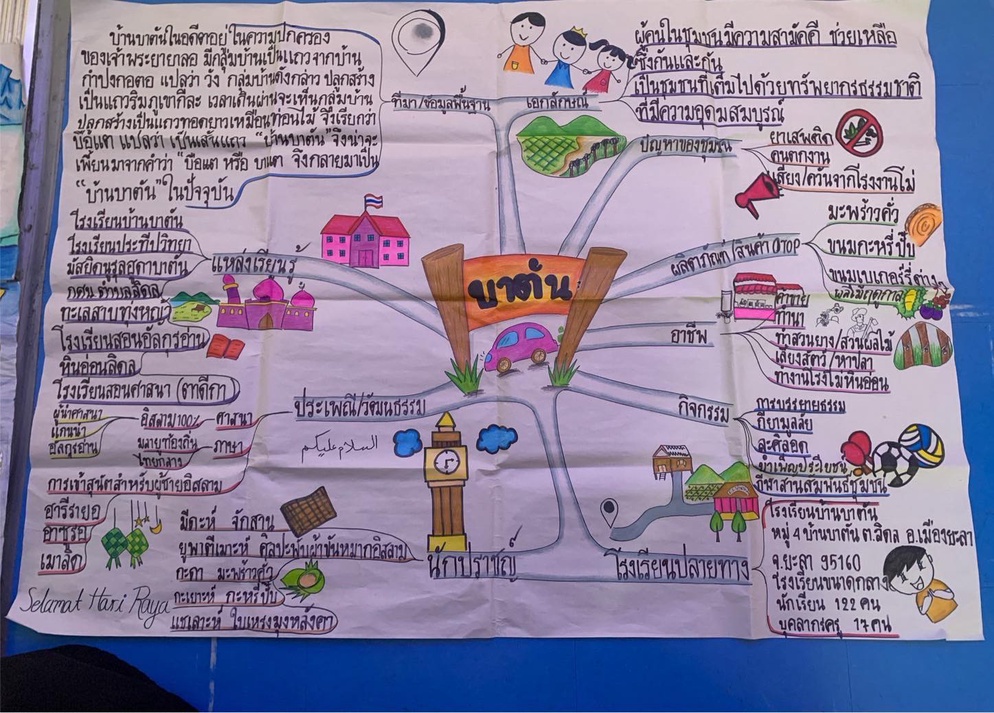 บ้านบาตันในอดีตอยู่ในความปกครอง
ของเจ้าพระยายาลอ มีกลุ่มบ้านเป็นแถวจากบ้าน
กำปงกอตอ แปลว่า วัง กลุ่มบ้านดังกล่าว ปลูกสร้าง
เป็นแถวริมภูเขากีละ เวลาเดินผ่านจะเห็นกลุ่มบ้าน
ปลูกสร้างเป็นแถวทอดยาวเหมือนท่อนไม้ จึงเรียกว่า
บือแต แปลว่า เป็นเส้นแถว "บ้านบาตัน" จึงน่าจะ
เพี้ยนมาจากคำว่า "บือแต หรือ บาแต จึงกลายมาเป็น
"บ้านบาตัน" ในปัจจุบัน
ที่มา/ข้อมูลพื้นฐาน
เอกลักษณ์
ผู้คนในชุมชนมีความสามัคคี ช่วยเหลือ
ซึ่งกันและกัน
เป็นชุมชนที่เต็มไปด้วยทรัพยากรธรรมชาติ
ที่มีความอุดมสมบูรณ์
ปัญหาของชุมชน
ยาเสพติด
คนตกงาน
เสียง/ควันจากโรงงานโม่
ผลิตภัณฑ์/สินค้า OTOP
มะพร้าวคั่ว
ขนมกะหรี่ปั๊บ
ขนมเบเกอร์รี่ต่างๆ
ผลไม้ฤดูกาล
แหล่งเรียนรู้
โรงเรียนบ้านบาตัน
โรงเรียนประทีปวิทยา
มัสยิดนูรุลฮูดาบาตัน
กศน ตำบลลิดล
ทะเลสาบทุ่งหญ้า
โรงเรียนสอนอัลกุรอ่าน
หินอ่อนลิดล
โรงเรียนสอนศาสนา (ตาดีกา)
บาตัน
อาชีพ
ค้าขาย
ทำนา
ทำสวนยาง/สวนผลไม้
เลี้ยงสัตว์/หาปลา
ทำงานโรงโม่หินอ่อน
ประเพณี/วัฒนธรรม
ผู้นำศาสนา
อิสลาม 100%
ศาสนา
อัลกุรอ่าน
มลายูท้องถิ่น
ภาษา
ไทยกลาง
การเข้าสุนัตสำหรับผู้ชายอิสลาม
ฮารีรายอ
อาซูรอ
เมาลิด
Selamat Hari Raya
السلام عليكم
กิจกรรม
การบรรยายธรรม
กียามูลลัย
ละศีลอด
บำเพ็ญประโยชน์
กีฬาสานสัมพันธ์ชุมชน
นักปราชญ์
มีดะห์ จักสาน
ยูพาตีเมาะห์ ศิลปะพับผ้าขันหมากอิสลาม
กะดา มะพร้าวคั่ว
กะเยาะห์ กะหรี่ปั๊บ
แชเลาะห์ ใบเหรงมุงหลังคา
โรงเรียนปลายทาง
โรงเรียนบ้านบาตัน
หมู่ 4 บ้านบาตัน ต.ลิดล อ.เมืองยะลา
จ.ยะลา 95160
โรงเรียนขนาดกลาง
นักเรียน 122 คน
บุคลากรครู 17 คน